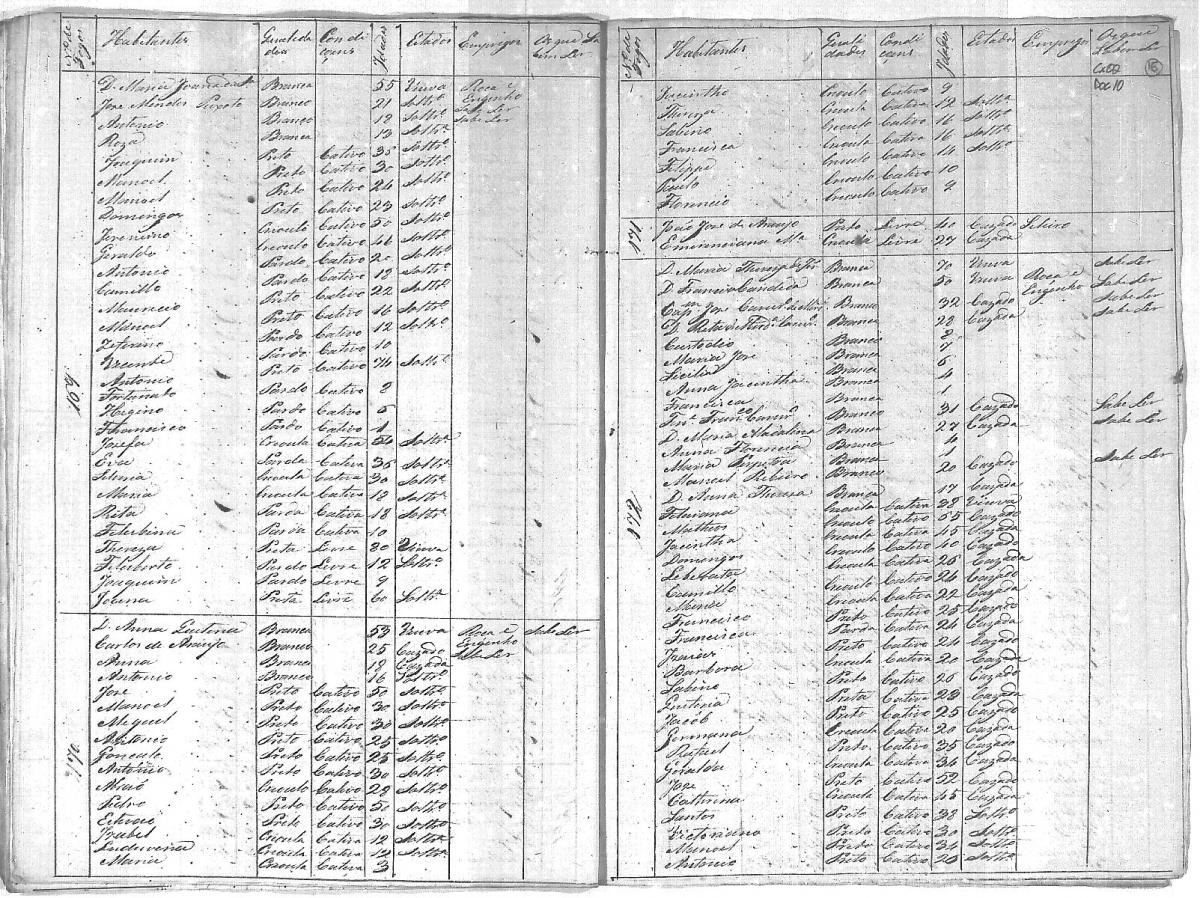 Nº de Fogos Habitantes Qualidades Condições Idades Estados Empregos
169
D. Maria Joanna Branca 55 Viuva Roça e
Jose Mendes Peixoto Branco 21 Soltrº Engenho Sabe Ler
Antonio Branco 18 Soltrº Sabe Ler
Roza Branca 13 Soltrª
Joaquim Preto Cativo 35 Soltrº
Manoel Preto Cativo 30 Soltrº
Manoel Preto Cativo 24 Soltrº
Domingos Preto Cativo 23 Soltrº
Jeronimo Creoulo Cativo 50 Soltrº
Geraldo Creoulo Cativo 46 Soltrº
Antonio Pardo Cativo 20 Soltrº
Camillo Pardo Cativo 12 Soltrº
Mauricio Preto Cativo 22 Soltrº
Manoel Preto Cativo 16 Soltrº
Zeferino Pardo Cativo 12 Soltrº
Vicente Pardo Cativo 10
Antonio Preto Cativo 74 Soltrº
Fortunato Pardo Cativo 2
Higino Pardo Cativo 5
Francisco Pardo Cativo 1
Josefa Creoula Cativa 50 Soltrª
Eva Parda Cativa 35 Soltrª
Creoula Cativa 30 Soltrª
Maria Creoula Cativa 12 Soltrª
Rita Parda Cativa 18 Soltrª
Parda Cativa 10
Thereza Preta Livre 80 Viuva
Feliberto Pardo Livre 12 Soltrº
Joaquim Pardo Livre 9
Joanna Preta Livre 60 Soltrª
170
D. Anna Quiteria Branca 53 Viuva Roça e Sabe Ler
Carlos de Araujo Branco 25 Cazado Engenho Sabe Ler
Anna Branca 18 Cazada
Antonio Branco 16 Soltrº
Jose Preto Cativo 50 Soltrº
Manoel Preto Cativo 30 Soltrº
Miguel Preto Cativo 30 Soltrº
Antonio Preto Cativo 25 Soltrº
Gonçalo Preto Cativo 25 Soltrº
Antonio Preto Cativo 30 Soltrº
Creoulo Cativo 28 Soltrº
Pedro Preto Cativo 50 Soltrº
Preto Cativo 30 Soltrº
Izabel Creoula Cativa 12 Soltrª
Creoula Cativa 12 Soltrª
Maria Creoula Cativa 3
Nº de Fogos Habitantes Qualidades Condições Idades Estados Emprego
CX02
DOC 10
16
Jacintho Creoulo Cativo 9
Thereza Creoula Cativa 12 Soltrª
Sabino Creoulo Cativo 16 Soltrº
Francisca Creoula Cativa 16 Soltrª
Filippe Creoulo Cativo 14 Soltrº
Paulo Creoulo Cativo 10
Florencio Creoulo Cativo 9
171
João Jose de Araujo Pardo Livre 40 Cazado Seleiro
Emerenciana Mª Creoula Livre 27 Cazada
172
D. Maria Thereza Branca 70 Viuva Sabe Ler
D. Francisca Candida Branca 50 Viuva Roça e Engenho Sabe Ler
Capam Jose Branco 32 Cazado Sabe Ler
D. Rita Branca 28 Cazada Sabe Ler
Custodio Branco 2
Maria Jose Branca 7
Cecilia Branca 6
Anna Jacintha Branca 4
Francisca Branca 1
Branco 31 Cazado Sabe Ler
D. Maria Madalena Branca 27 Cazada Sabe Ler
Anna Florencia Branca 4
Maria Branca 1
Manoel Ribeiro Branco 20 Cazado Sabe Ler
D. Anna Thereza Branca 17 Cazada
Feliciana Creoula Cativa 38 Viuva
Matheos Creoulo Cativo 55 Cazado
Jacintha Creoula Cativa 45 Cazada
Domingos Creoulo Cativo 40 Cazado
Creoula Cativa 26 Cazada
Camillo Creoulo Cativo 26 Cazado
Maria Creoula Cativa 22 Cazada
Francisco Preto Cativo 25 Cazado
Francisca Parda Cativa 24 Cazada
Preto Cativo 24 Cazado
Barbora Creoula Cativa 20 Cazada
Sabino Preto Cativo 26 Cazado
Quiteria Preta Cativa 23 Cazada
Jacób Preto Cativo 25 Cazado
Germana Creoula Cativa 20 Cazada
Rafael Preto Cativo 35 Cazado
Geralda Creoula Cativa 34 Cazada
Jose Preto Cativo 52 Cazado
Catherina Creoula Cativa 45 Cazada
Santos Preto Cativo 38 Soltrº
Victoriano Preto Cativo 30 Soltrº
Manoel Preto Cativo 34 Soltrº
Antonio Preto Cativo 26 Soltrº